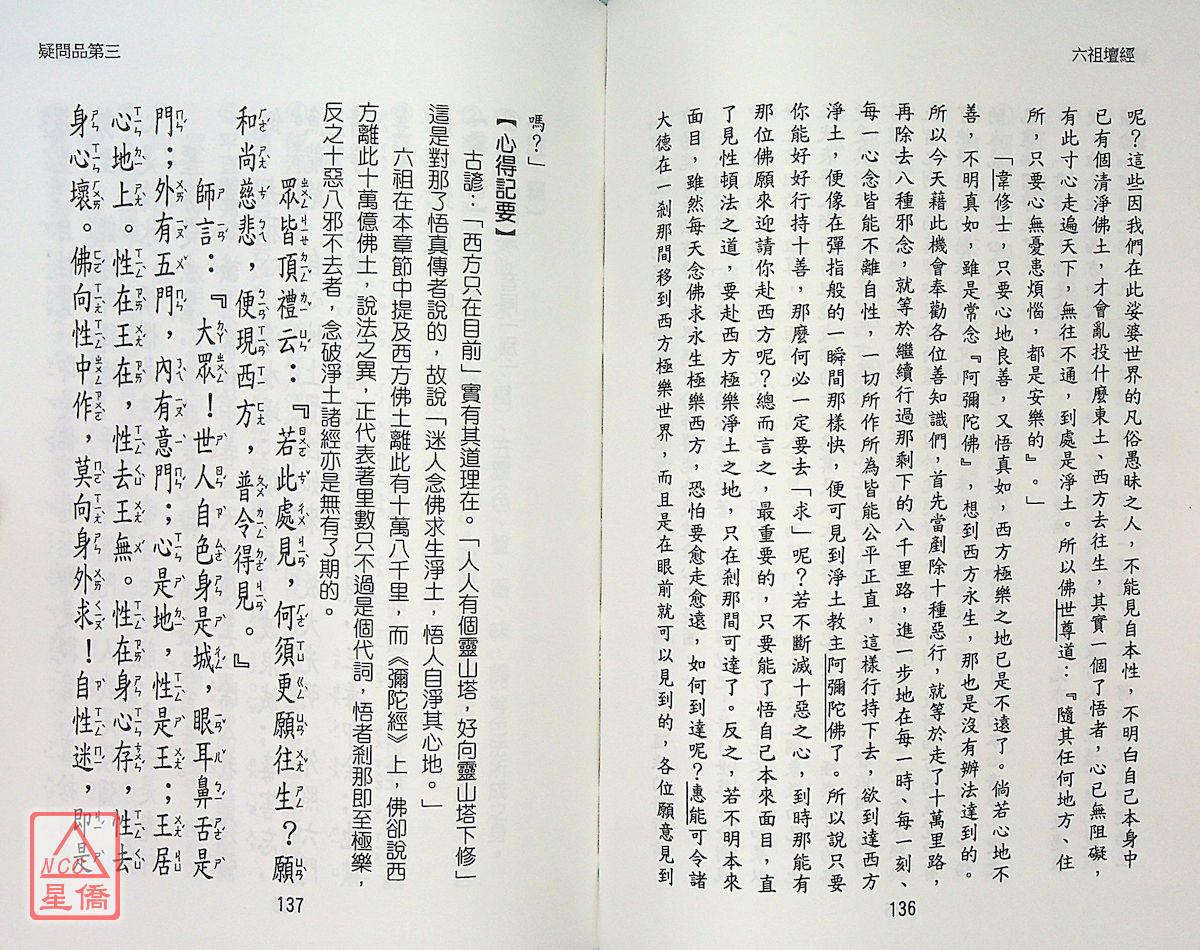 六祖壇經
呢？這些因我們在此娑婆世界的凡俗愚昧之人，不能見自本性，不明白自己本身中
已有個清淨佛土，才會亂投什麼東土、西方去往生，其實一個了悟者，心已無阻礙，
有此寸心走遍天下，無往不通，到處是淨土。所以佛世尊道：『隨其任何地方、住
所，只要心無憂患煩惱，都是安樂的』。」
「韋修士，只要心地良善，又悟真如，西方極樂之地已是不遠了。倘若心地不
善，不明真如，雖是常念『阿彌陀佛』，想到西方永生，那也是沒有辦法達到的。
所以今天藉此機會奉勸各位善知識們，首先當剷除十種惡行，就等於走了十萬里路，
再除去八種邪念，就等於繼續行過那剩下的八千里路，進一步地在每一時、每一刻、
每一心念皆能不離自性，一切所作所為皆能公平正直，這樣行持下去，欲到達西方
淨土，便像在彈指般的一瞬間那樣快，便可見到淨土教主阿彌陀佛了。所以說只要
你能好好行持十善，那麼何必一定要去「求」呢？若不斷滅十惡之心，到時那能有
那位佛願來迎請你赴西方呢？總而言之，最重要的，只要能了悟自己本來面目，直
了見性頓法之道，要赴西方極樂淨土之地，只在剎那間可達了。反之，若不明本來
面目，雖然每天念佛求永生極樂西方，恐怕要愈走愈遠，如何到達呢？惠能可令諸
大德在一剎那間移到西方極樂世界，而且是在眼前就可以見到的，各位願意見到
136
疑問品第三
嗎？」
【心得記要】
古諺：「西方只在目前」實有其道理在。「人人有個靈山塔，好向靈山塔下修」
這是對那了悟真傳者說的，故說「迷人念佛求生淨土，悟人自淨其心地。」
六祖在本章節中提及西方佛土離此有十萬八千里，而《彌陀經》上，佛卻說西
方離此十萬億佛土，說法之異，正代表著里數只不過是個代詞，悟者剎那即至極樂，
反之十惡八邪不去者，念破淨土諸經亦是無有了期的。
眾皆頂禮云：『若此處見，何須更願往生？願
和尚慈悲，便現西方，普令得見。』
師言：『大眾！世人自色身是城，眼耳鼻舌是
門；外有五門，內有意門；心是地，性是王；王居
心地上。性在王在，性去王無。性在身心存，性去
身心壞。佛向性中作，莫向身外求！自性迷，即是
137
NCC
星僑